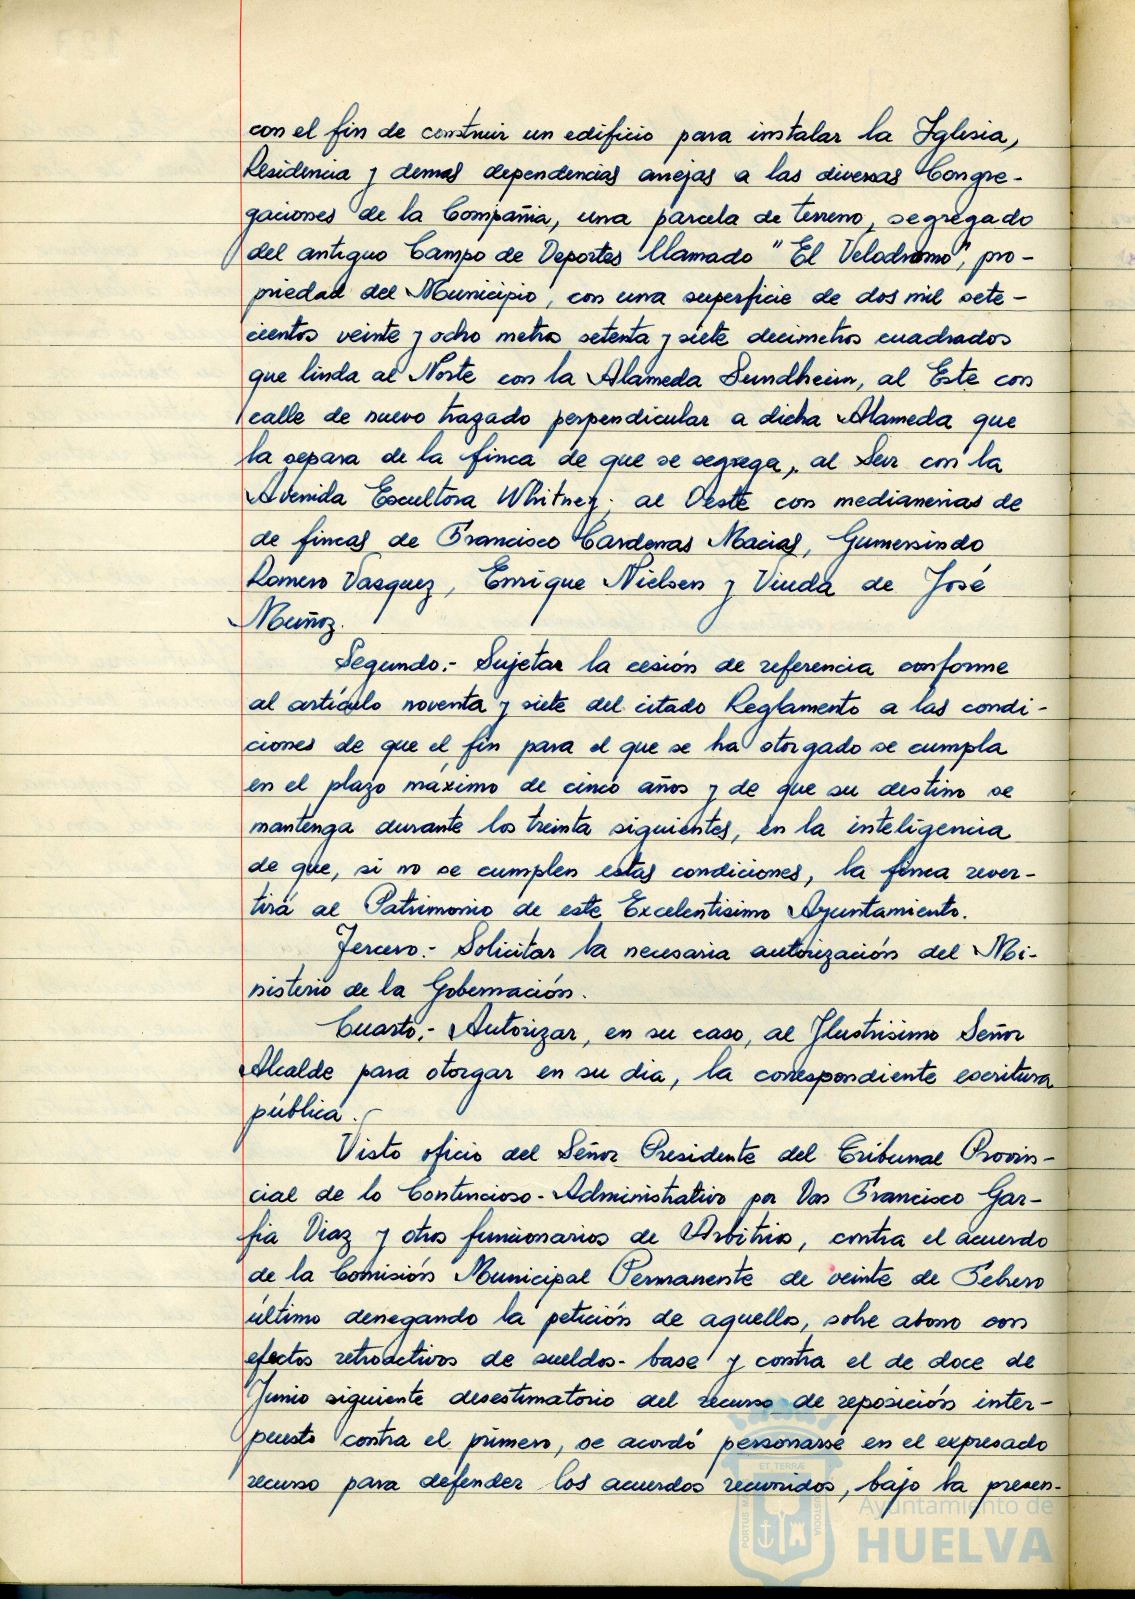 con el fin de construir un edificio para instalar la Iglesia,
Residencia y demas dependencias anejas a las diversas Congre-
gaciones de la Compañia, una parcela de terreno, segregado
del antiguo Campo de Deportes llamado "El Velodromo", pro-
piedad del Municipio, con una superficie de dos mil sete-
cientos veinte y ocho metros setenta y siete decimetros cuadrados
que linda al Norte con la Alameda Sundheim, al Este con
calle de nuevo trazado perpendicular a dicha Alameda que
la separa de la finca de que se segrega, al Sur con la
Avenida Escultora Whitney; al Oeste con medianerias de
de fincas de Francisco Cardenas Macias, Gumersindo
Romero Vasquez, Enrique Nielsen y Viuda de José
Muñoz.
Segundo.- Sujetar la cesión de referencia conforme
al artículo noventa y siete del citado Reglamento a las condi-
ciones de que el fin para el que se ha otorgado se cumpla
en el plazo máximo de cinco años y de que su destino se
mantenga durante los treinta siguientes, en la inteligencia
de que, si no se cumplen estas condiciones, la finca rever-
tirá al Patrimonio de este Excelentisimo Ayuntamiento.
Tercero.- Solicitar la necesaria autorización del Mi-
nisterio de la Gobernación.
Cuarto.- Autorizar, en su caso, al Ilustrisimo Señor
Alcalde para otorgar en su dia, la correspondiente escritura
pública.
Visto oficio del Señor Presidente del Tribunal Provin-
cial de lo Contencioso-Administrativo por Don Francisco Gar-
fia Diaz y otros funcionarios de Arbitrios, contra el acuerdo
de la Comisión Municipal Permanente de veinte de Febrero
último denegando la petición de aquellos, sobre abono con
efectos retroactivos de sueldos-base y contra el de doce de
Junio siguiente desestimatorio del recurso de reposición inter-
puesto contra el primero, se acordó personarse en el expresado
recurso para defender los acuerdos recurridos, bajo la presen-
ET TERRÆ
PORTUS MARIS
CUSTODIA
Ayuntamiento de
HUELVA